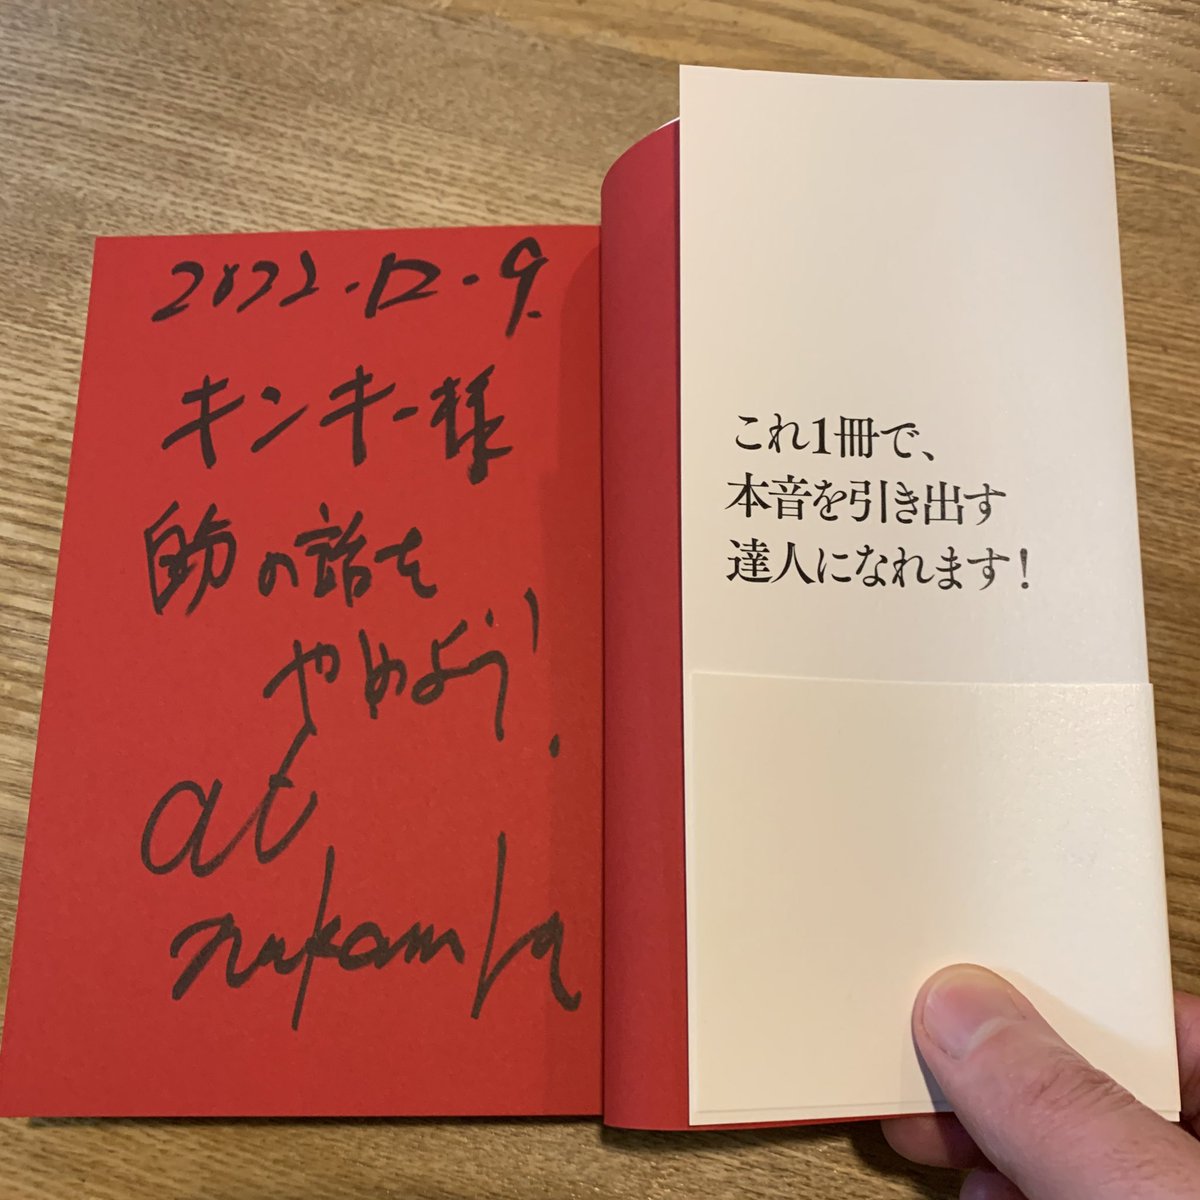 2022.12.9.
キンキー様
自分の話を
やめよう!
at
nakamura
これ1冊で、
本音を引き出す
達人になれます!